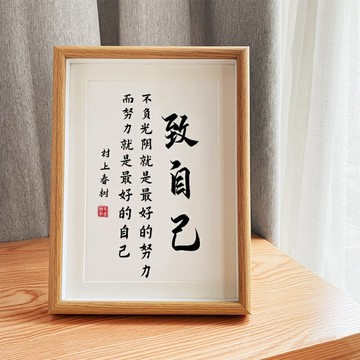 致自己
不负光阴就是最好的努力
而努力就是最好的自己
村上春树